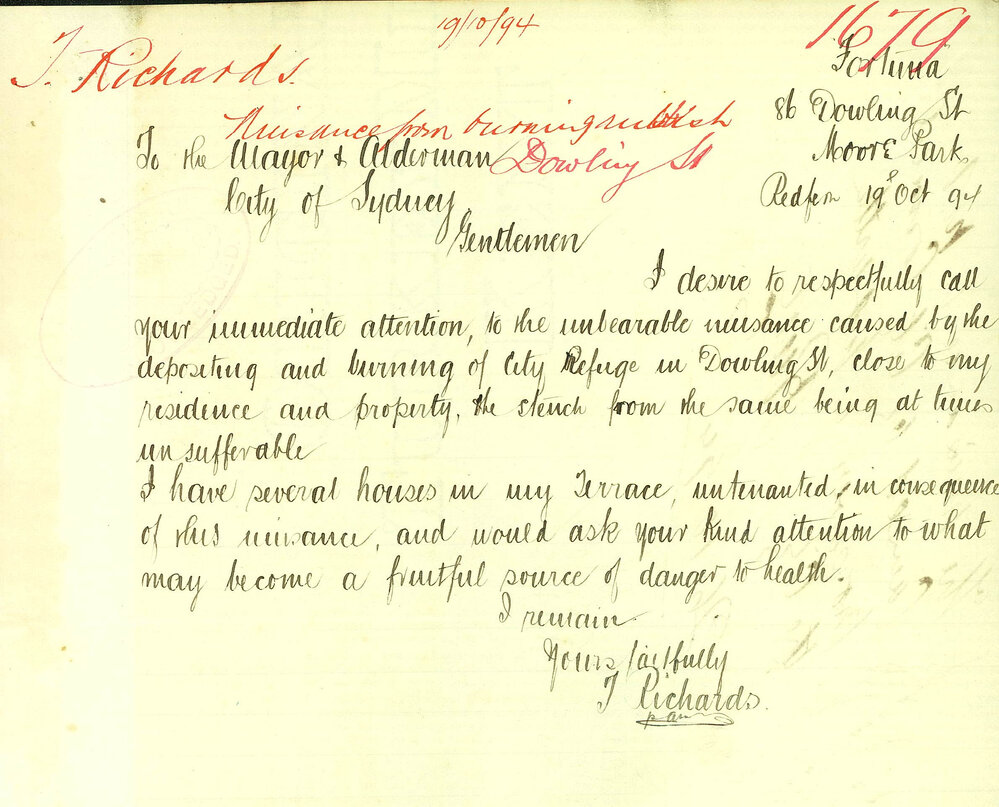 19/10/94
1679
T. Richards.
Fortuna
86 Dowling St
Moore Park
Redfern 19th Oct 94
Nuisance from burning rubbish
Dowling St
To the Mayor & Alderman
City of Sydney
Gentlemen
I desire to respectfully call
your immediate attention, to the unbearable nuisance caused by the
depositing and burning of City Refuge in Dowling St, close to my
residence and property, the stench from the same being at times
unsufferable
I have several houses in my Terrace, untenanted, in consequence
of this nuisance, and would ask your kind attention to what
may become a fruitful source of danger to health.
I remain
Yours faithfully
T Richards.